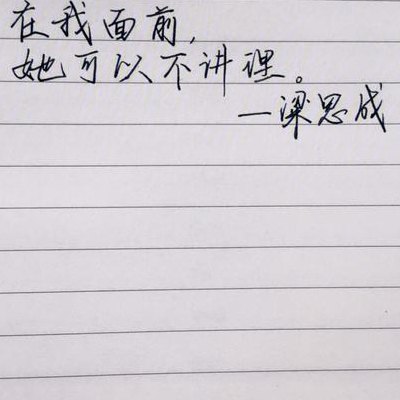 在我面前,
她可以不讲理。
—梁思成